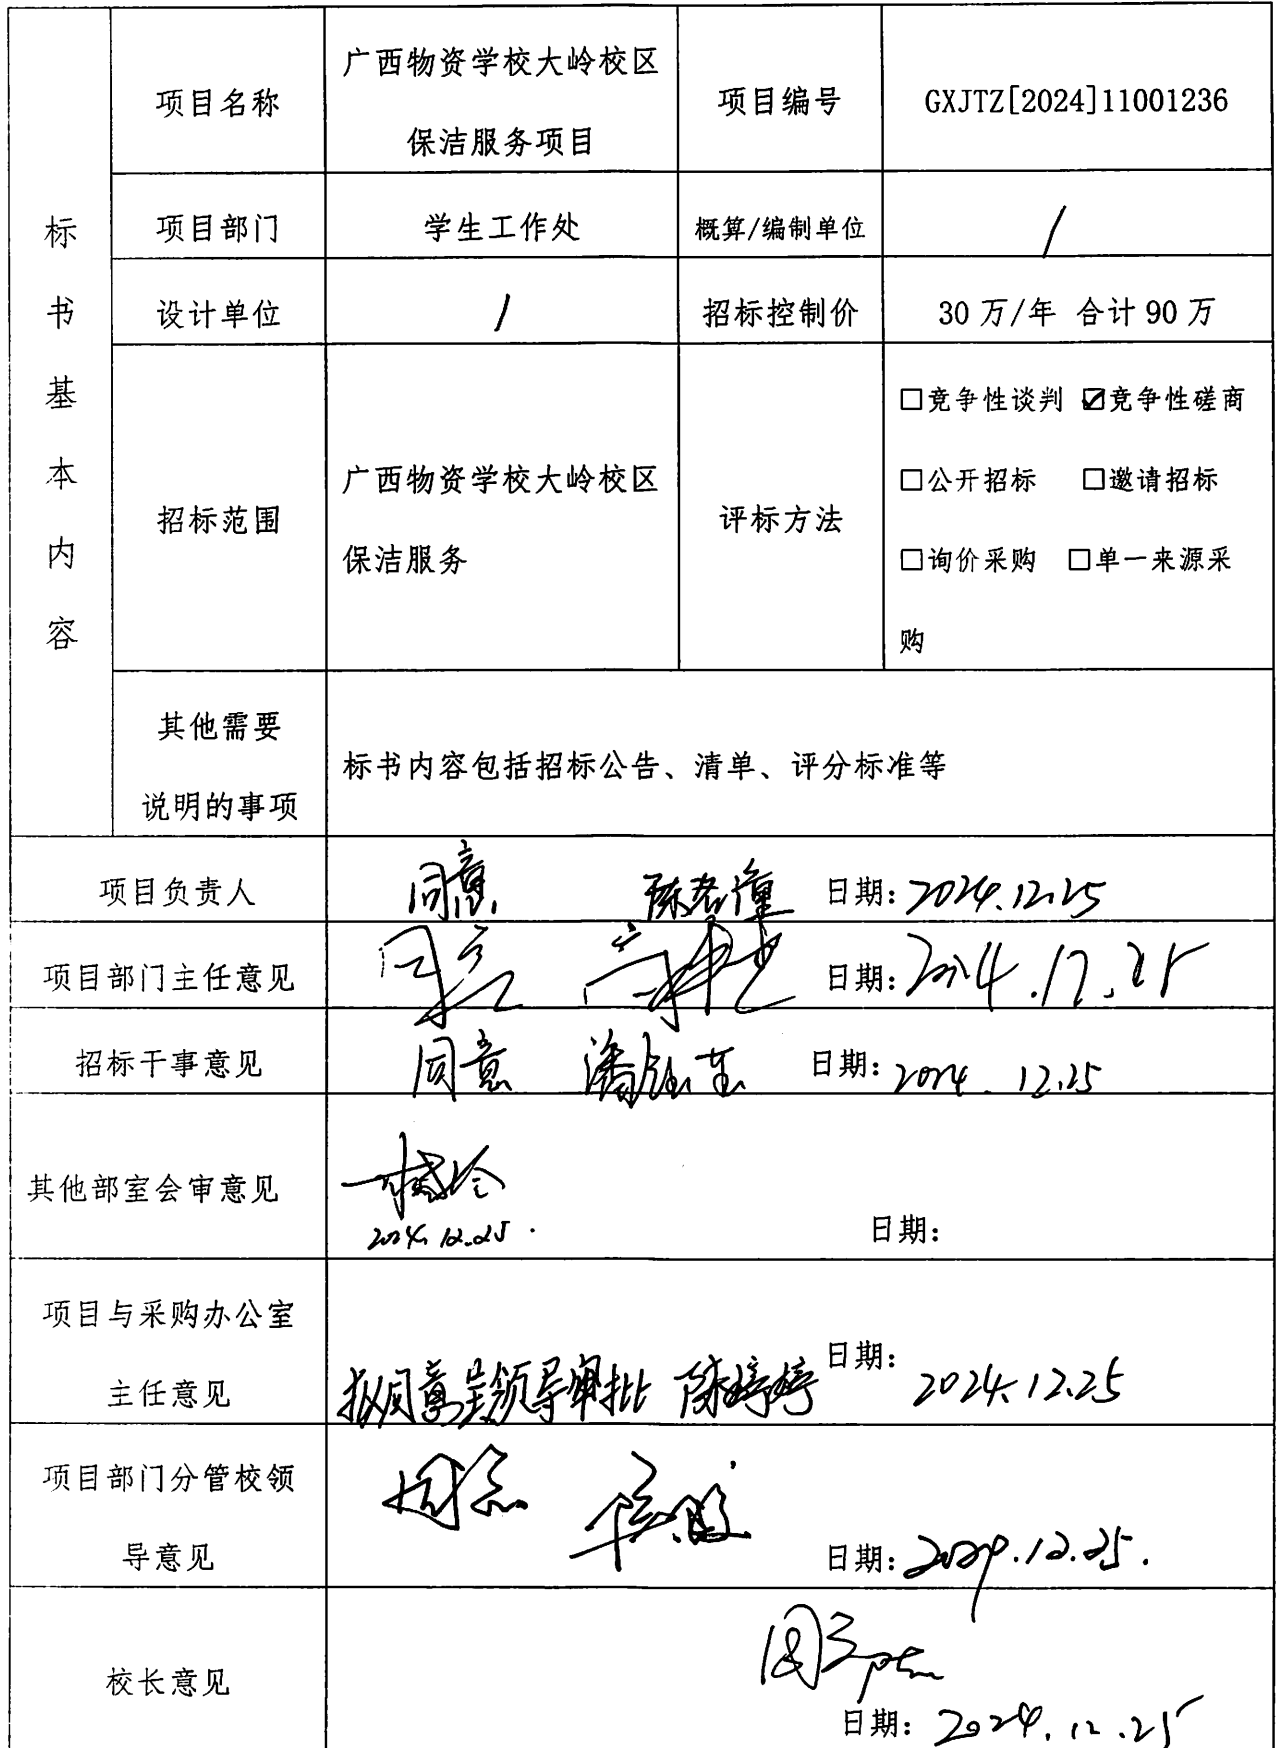 标书基本内容
项目名称
广西物资学校大岭校区
保洁服务项目
项目编号
GXJTZ[2024]11001236
项目部门
学生工作处
概算/编制单位
/
设计单位
/
招标控制价
30万/年 合计90万
招标范围
广西物资学校大岭校区
保洁服务
评标方法
□竞争性谈判 ☑竞争性磋商
□公开招标 □邀请招标
□询价采购 □单一来源采
购
其他需要
说明的事项
标书内容包括招标公告、清单、评分标准等
项目负责人
同意 日期:2024.12.25
项目部门主任意见
同意 日期:2024.12.25
招标干事意见
同意 日期:2024.12.25
其他部室会审意见
2024.12.25.
日期:
项目与采购办公室
主任意见
拟同意呈领导审批 陈婷婷 日期:2024.12.25
项目部门分管校领
导意见
同意
日期:2024.12.25.
校长意见
日期:2024.12.25